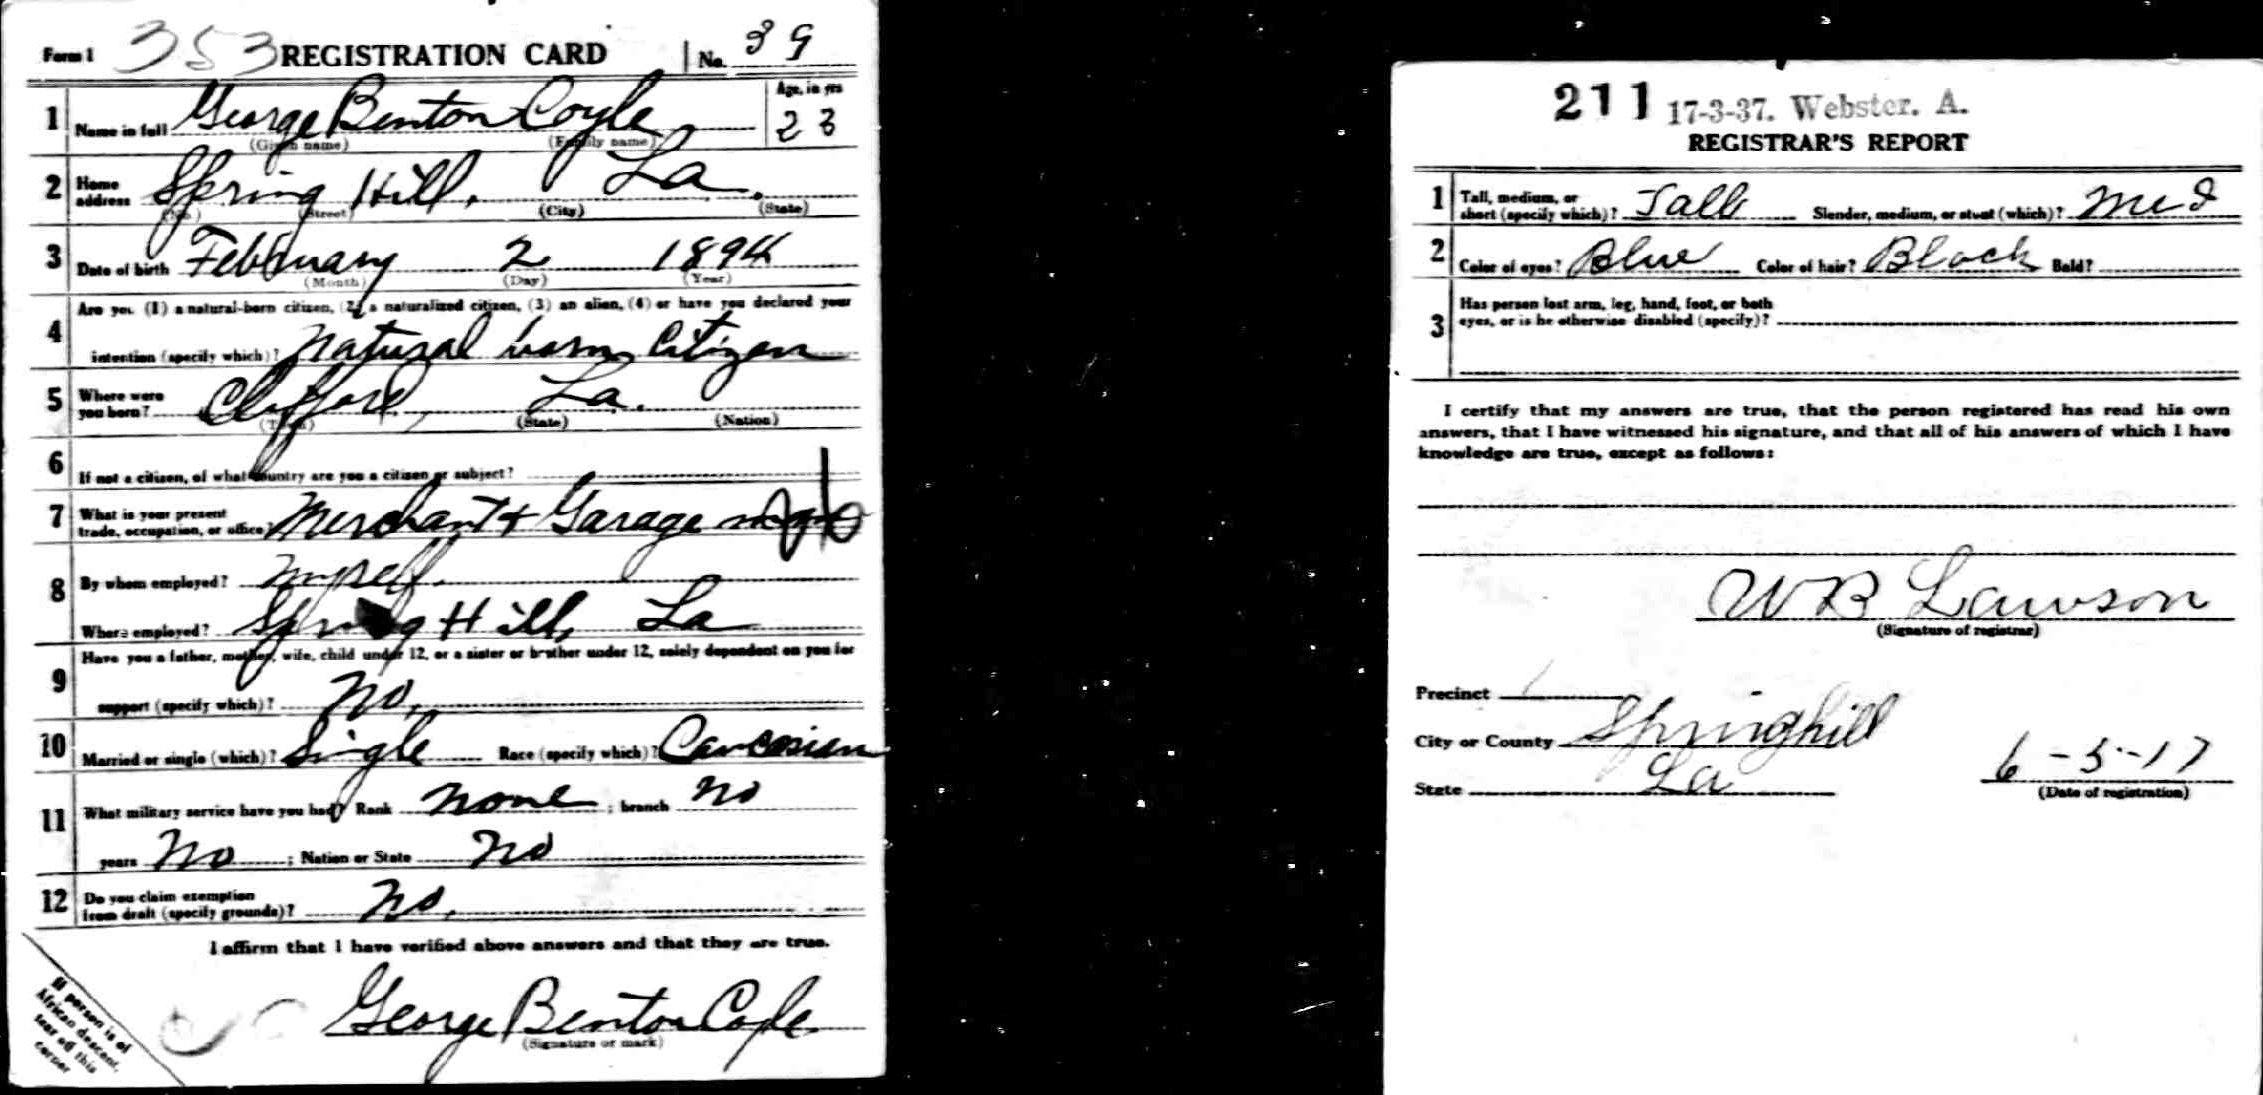 Form 1 353 REGISTRATION CARD No. 39
1 Name in full George Benton Coyle Age, in yrs 23
(Given name) (Family name)
2 Home address Spring Hill. La.
(No.) (Street) (City) (State)
3 Date of birth February 2 1894
(Month) (Day) (Year)
4 Are you (1) a natural-born citizen, (2) a naturalized citizen, (3) an alien, (4) or have you declared your
intention (specify which)? Natural born Citizen
5 Where were you born? Clifford, La.
(Town) (State) (Nation)
6 If not a citizen, of what country are you a citizen or subject?
7 What is your present trade, occupation, or office? Merchant & Garage
8 By whom employed? Myself.
Where employed? Spring Hill, La
9 Have you a father, mother, wife, child under 12, or a sister or brother under 12, solely dependent on you for
support (specify which)? No.
10 Married or single (which)? Single Race (specify which)? Caucasian
11 What military service have you had? Rank None ; branch No
years No ; Nation or State No
12 Do you claim exemption from draft (specify grounds)? No.
I affirm that I have verified above answers and that they are true.
George Benton Coyle
(Signature or mark)
If person is of
African descent,
tear off this
corner
211 17-3-37. Webster. A.
REGISTRAR'S REPORT
1 Tall, medium, or short (specify which)? Tall Slender, medium, or stout (which)? Med
2 Color of eyes? Blue Color of hair? Black Bald?
3 Has person lost arm, leg, hand, foot, or both
eyes, or is he otherwise disabled (specify)?
I certify that my answers are true, that the person registered has read his own
answers, that I have witnessed his signature, and that all of his answers of which I have
knowledge are true, except as follows:
WB Lawson
(Signature of registrar)
Precinct 1
City or County Springhill
State La 6-5-17
(Date of registration)